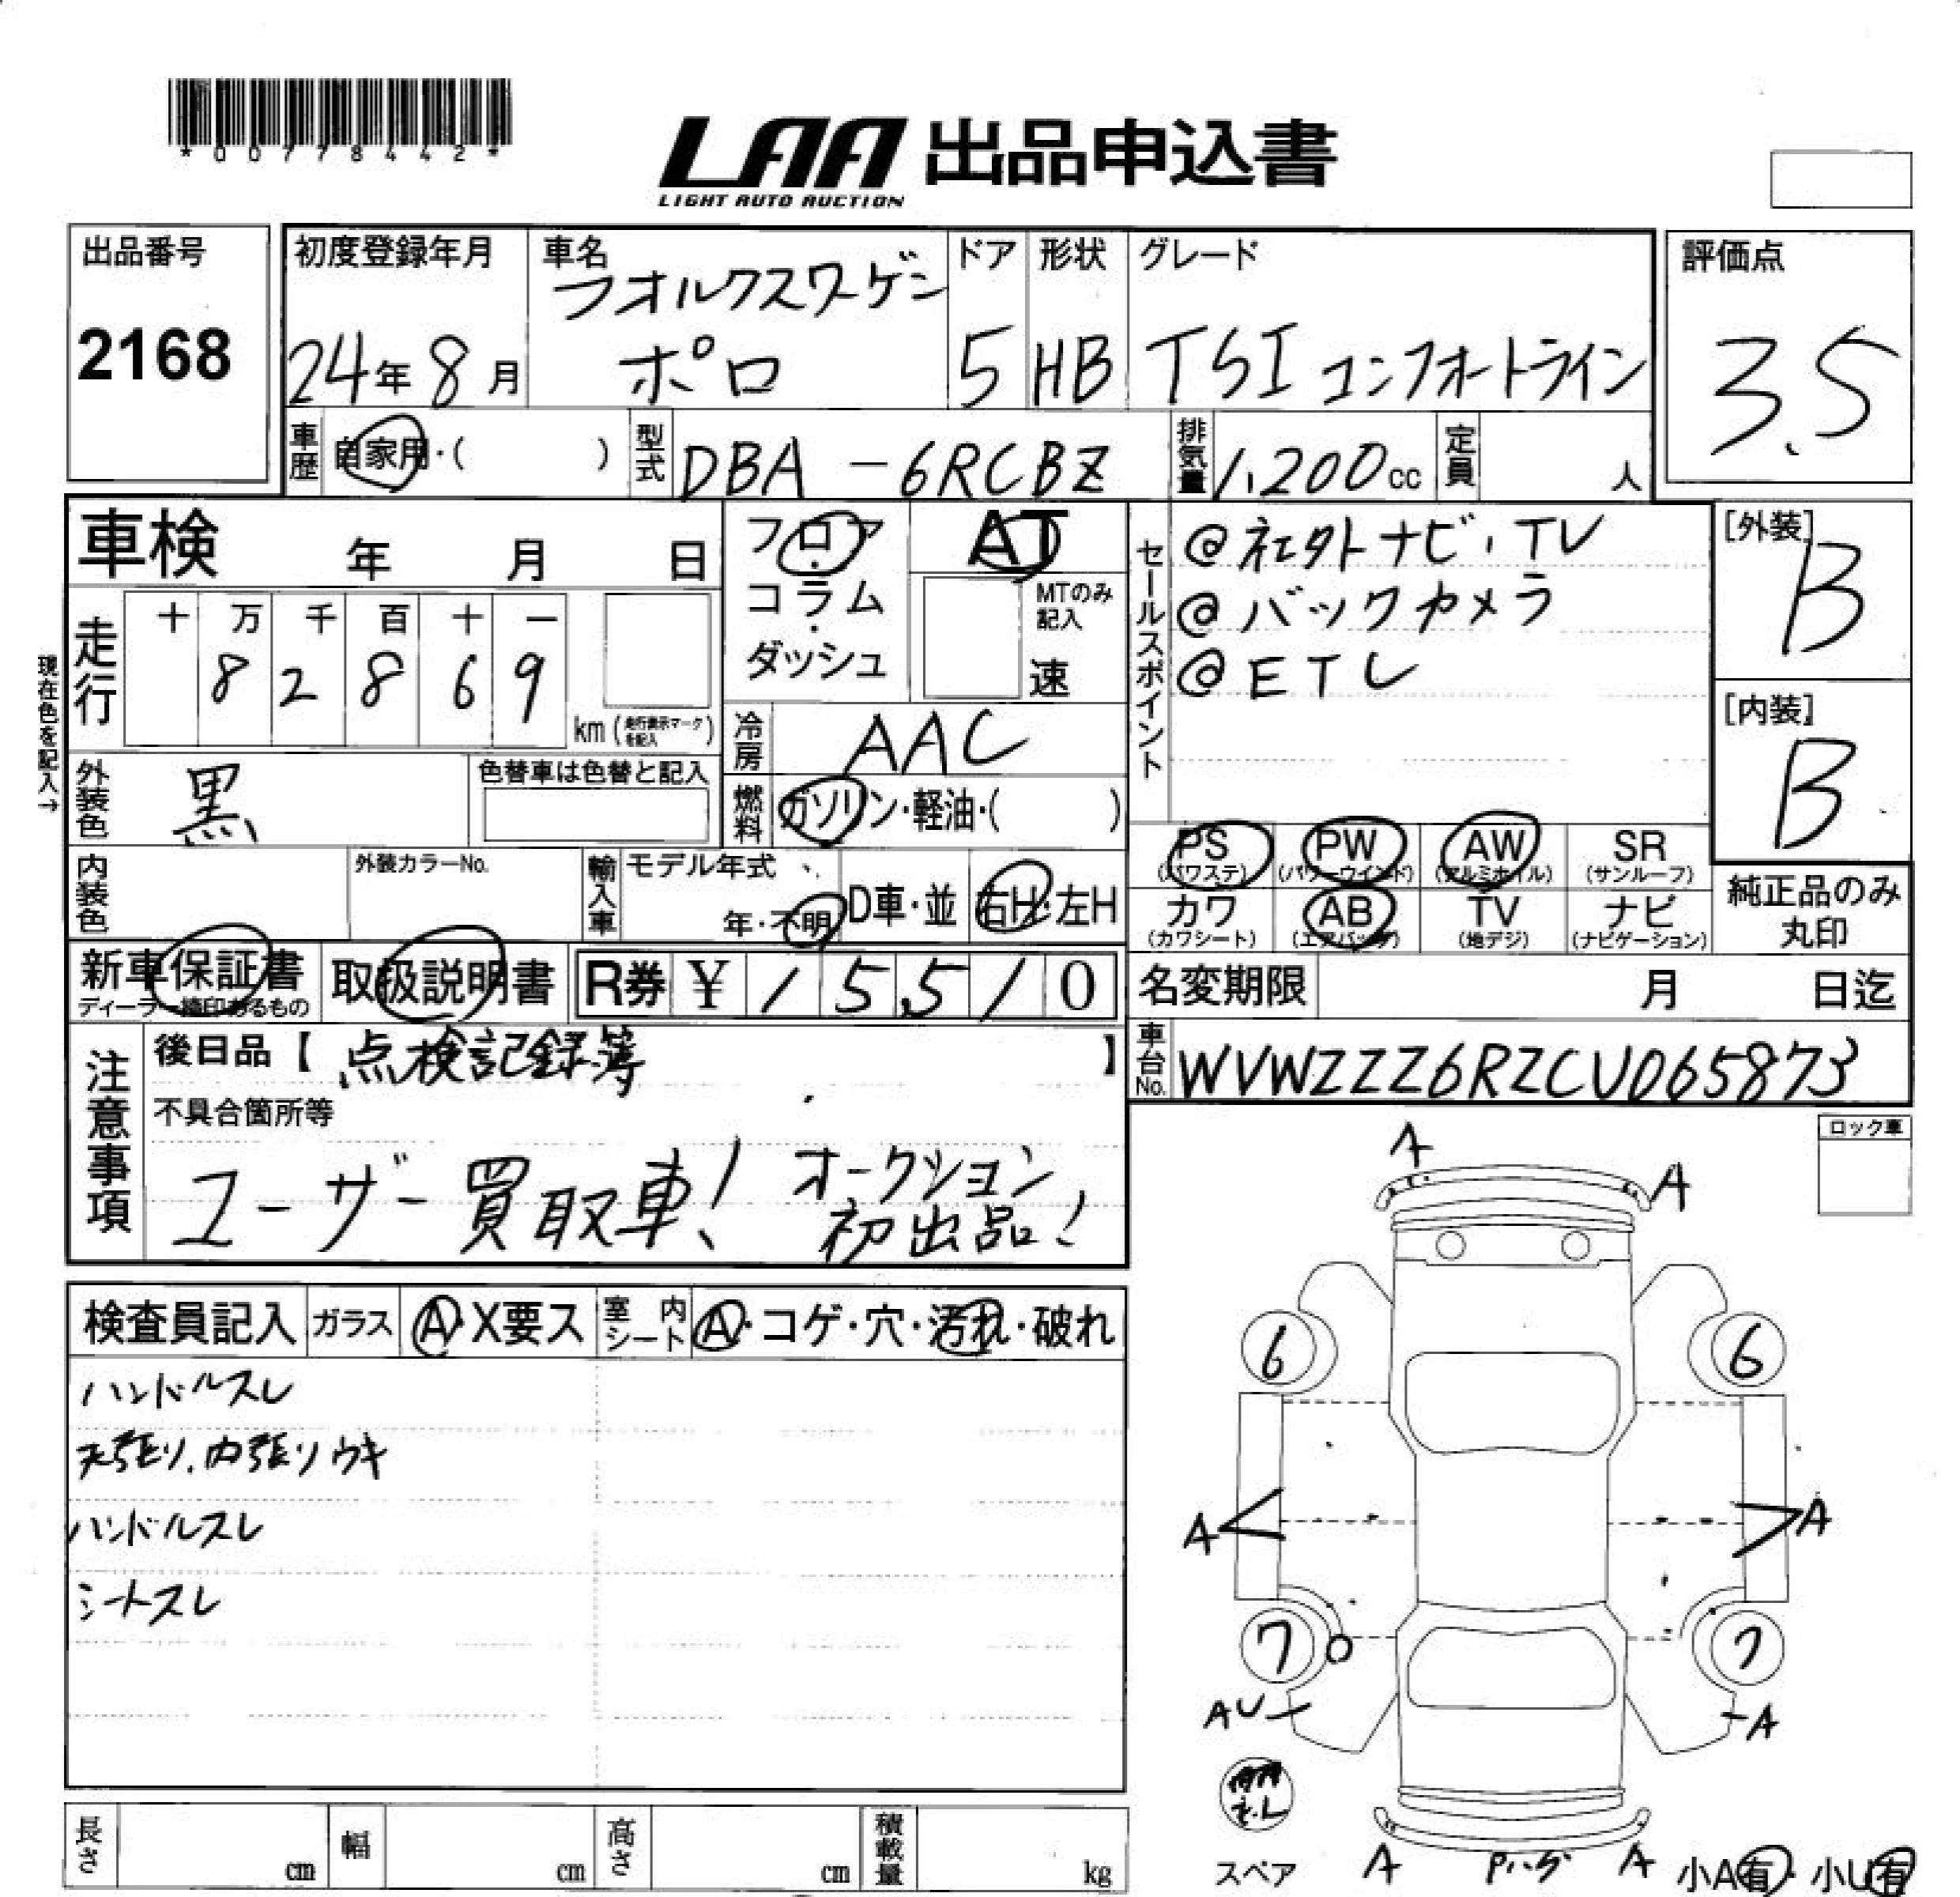 *00778442*
LAA 出品申込書
LIGHT AUTO AUCTION
出品番号
2168
初度登録年月
24年8月
車名
フオルクスワーゲン
ポロ
ドア
5
形状
HB
グレード
TSI コンフォートライン
評価点
3.5
車歴 自家用・( )
型式 DBA-6RCBZ
排気量 1,200cc
定員 人
車検 年 月 日
フロア・コラム・ダッシュ
AT
MTのみ記入
速
現在色を記入→
走行
十 万 千 百 十 一
8 2 8 6 9
km (走行表示マークを記入)
冷房 AAC
外装色 黒
色替車は色替と記入
燃料 ガソリン・軽油・( )
内装色
外装カラーNo.
輸入車 モデル年式
年・不明
D車・並
右H・左H
セールスポイント
@社外ナビ、TV
@バックカメラ
@ETC
[外装]
B
[内装]
B
PS PW AW SR
(パワステ) (パワーウインド) (アルミホイル) (サンルーフ)
カワ AB TV ナビ
(カワシート) (エアバッグ) (地デジ) (ナビゲーション)
純正品のみ
丸印
新車保証書
ディーラー捺印あるもの
取扱説明書
R券 ¥ 15510
名変期限 月 日迄
車台No. WVWZZZ6RZCU065873
注意事項
後日品【 点検記録簿 】
不具合箇所等
ユーザー買取車! オークション
初出品!
ロック車
検査員記入 ガラス A・X要ス 室内シート A・コゲ・穴・汚れ・破れ
ハンドルスレ
天張り、内張りウキ
ハンドルスレ
シートスレ
A
A
6 6
A A
7 7
AU A
スペア
A A
小A有・小U有
長さ cm 幅 cm 高さ cm 積載量 kg